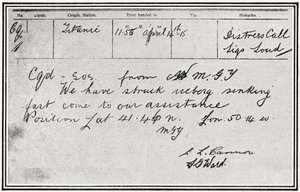 No. Words. Origin. Station. Time handed in Via. Remarks.
Titanic 11·55 April 14th 15 Distress Call Sigs Loud
Cqd - Sos. from M. G. Y
We have struck iceberg sinking
fast come to our assistance
Position Lat 41.46 n. Lon 50.14 w
MGY